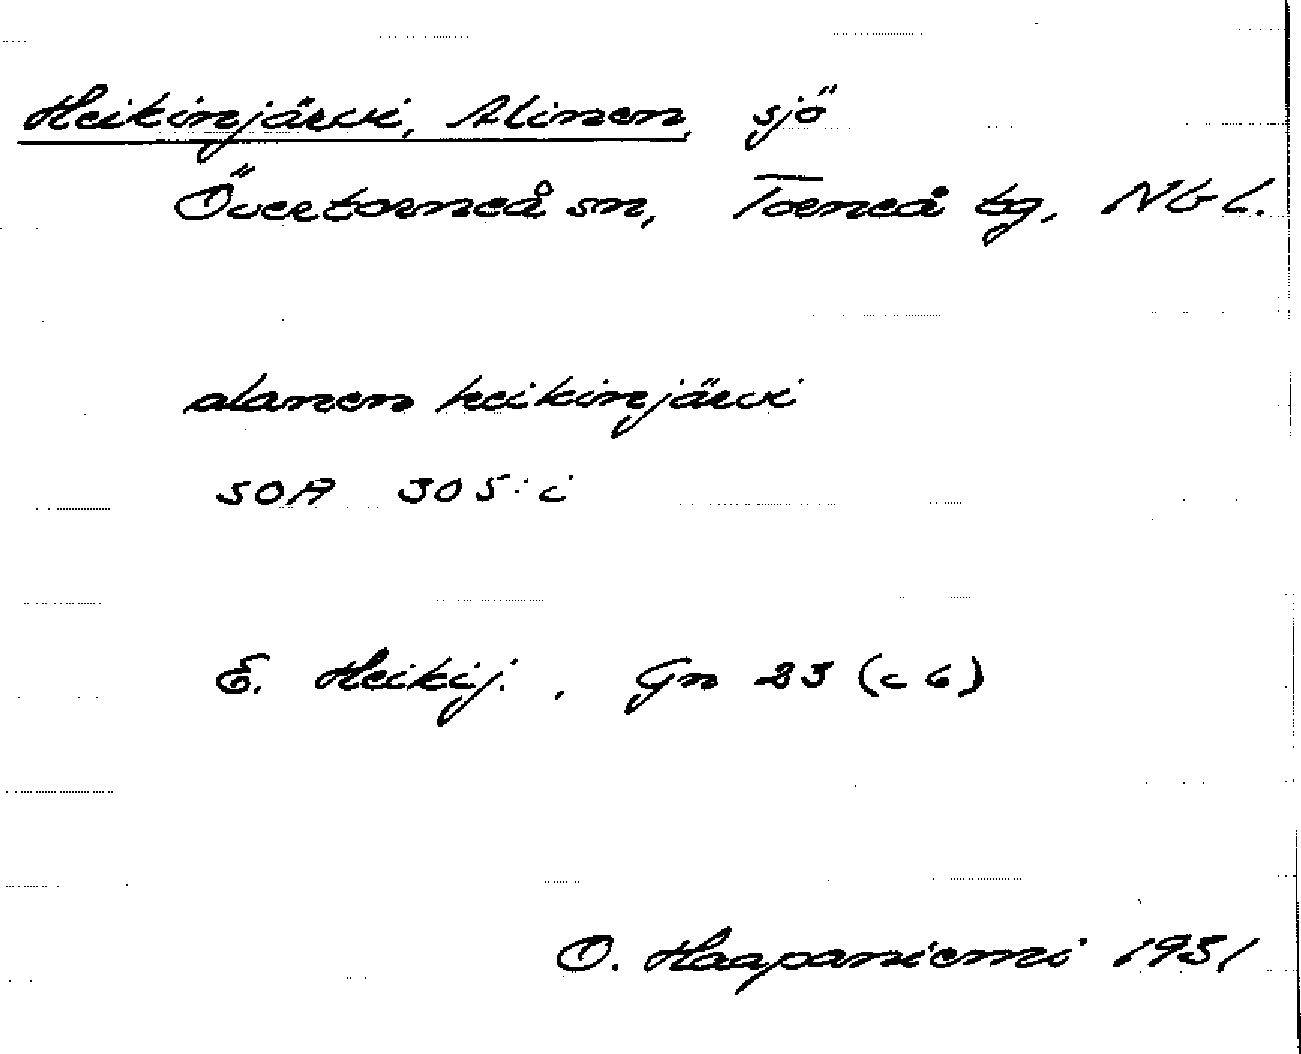 Heikinjärvi, Alinen, sjö
Övertorneå sn, Torneå tg, Nb l.
alanen heikinjärvi
SOA 305:i
E. Heikij. , Gn 23 (c 6)
O. Haapaniemi 1931